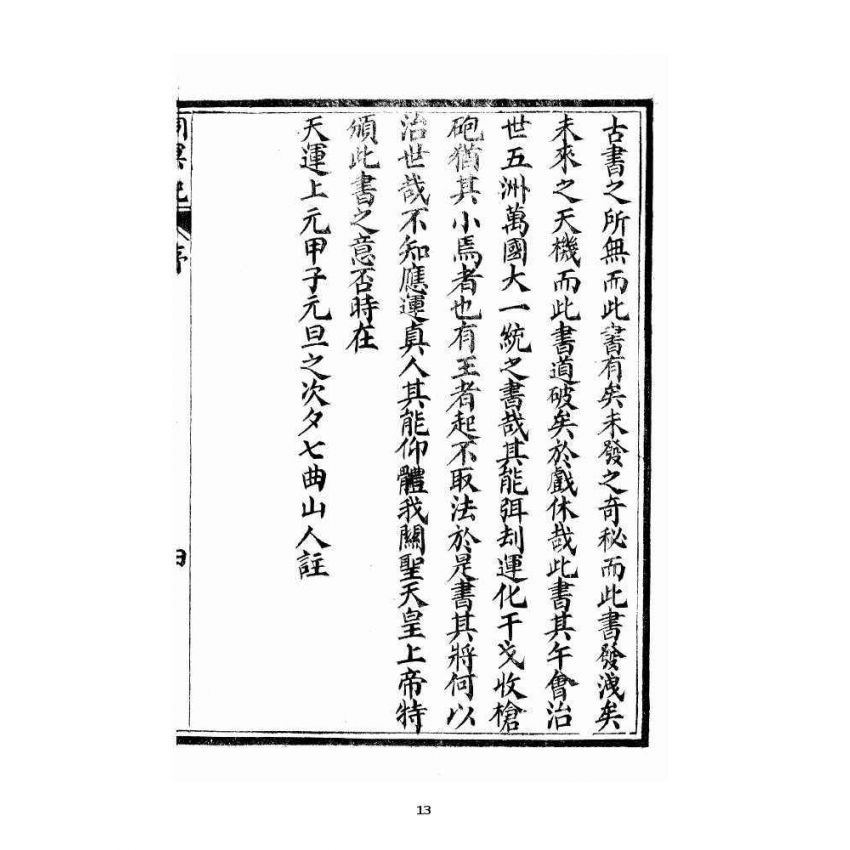 古書之所無而此書有矣未發之奇秘而此書發洩矣
未來之天機而此書道破矣於戲休哉此書其午會治
世五洲萬國大一統之書哉其能弭刦運化干戈收槍
砲猶其小焉者也有王者起不取法於是書其將何以
治世哉不知應運真人其能仰體我關聖天皇上帝特
頒此書之意否時在
天運上元甲子元旦之次夕七曲山人註
洞冥記
序
四
13